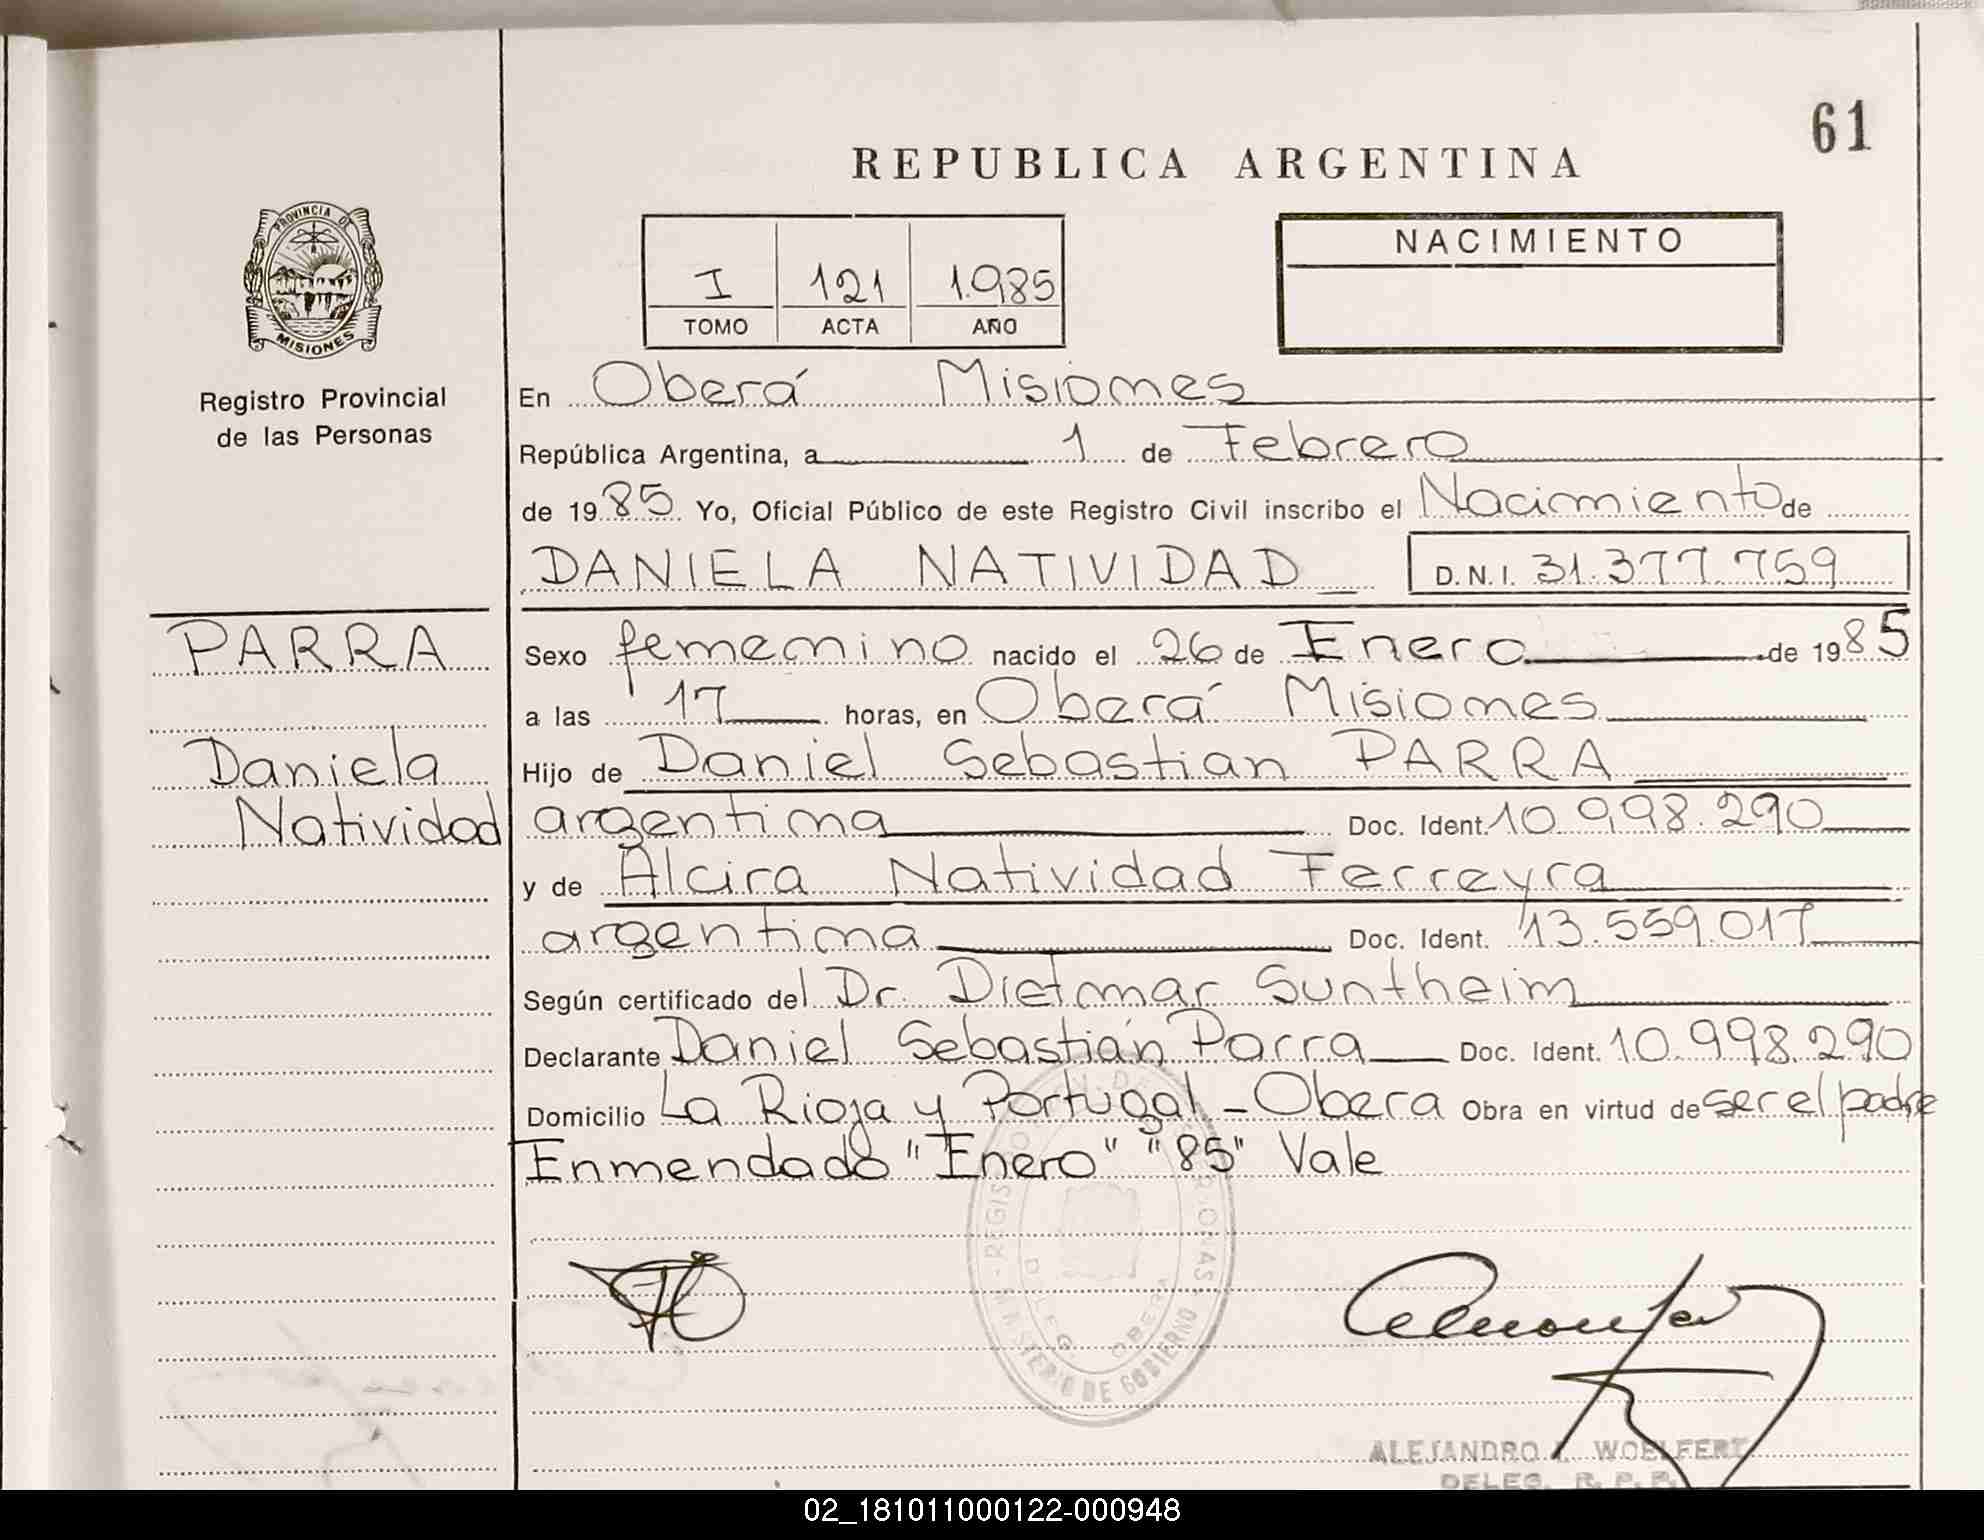 61
REPUBLICA ARGENTINA
PROVINCIA DE
MISIONES
Registro Provincial
de las Personas
I 121 1.985
TOMO ACTA AÑO
NACIMIENTO
En Oberá Misiones
República Argentina, a 1 de Febrero
de 1985 Yo, Oficial Público de este Registro Civil inscribo el Nacimiento de
DANIELA NATIVIDAD D.N.I. 31.377.759
PARRA
Daniela
Natividad
Sexo femenino nacido el 26 de Enero de 1985
a las 17 horas, en Oberá Misiones
Hijo de Daniel Sebastian PARRA
argentina Doc. Ident. 10.998.290
y de Alcira Natividad Ferreyra
argentina Doc. Ident. 13.559.017
Según certificado del Dr. Dietmar Suntheim
Declarante Daniel Sebastián Parra Doc. Ident. 10.998.290
Domicilio La Rioja y Portugal - Obera Obra en virtud de ser el padre
Enmendado "Enero" "85" Vale
MINISTERIO DE GOBIERNO
OBERA
ALEJANDRO WOELFERT
DELEG. R. P. P.
02_181011000122-000948